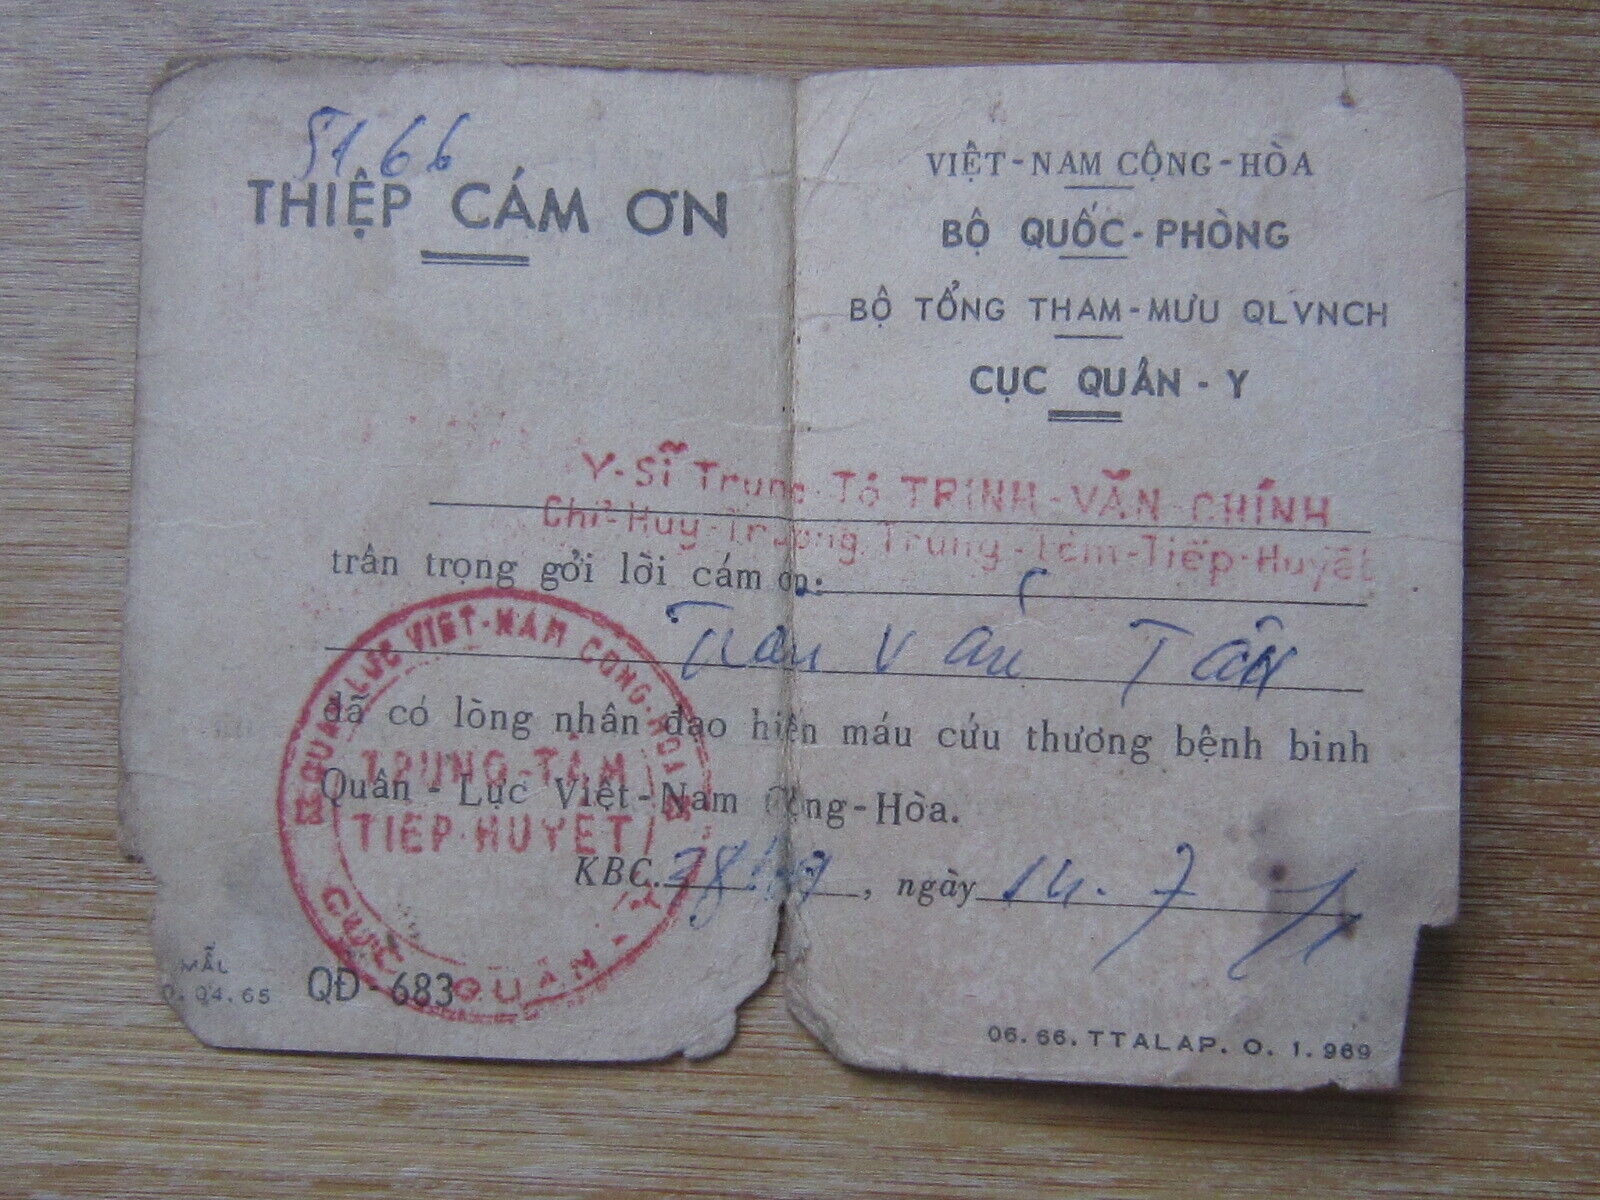 5166
THIỆP CÁM ƠN
VIỆT-NAM CỘNG-HÒA
BỘ QUỐC-PHÒNG
BỘ TỔNG THAM-MƯU QLVNCH
CỤC QUÂN-Y
Y-Sĩ Trung-Tá TRỊNH-VĂN-CHÍNH
Chỉ-Huy-Trưởng Trung-Tâm-Tiếp-Huyết
trân trọng gởi lời cám ơn:
Trần Văn Tấn
đã có lòng nhân đạo hiến máu cứu thương bệnh binh
Quân-Lực Việt-Nam Cộng-Hòa.
KBC. , ngày 14. 7
QUÂN-LỰC VIỆT-NAM CỘNG-HÒA
TRUNG-TÂM
TIẾP-HUYẾT
CỤC QUÂN-Y
MẪU
04.65 QĐ-683
06.66. TTALAP. O. 1.969